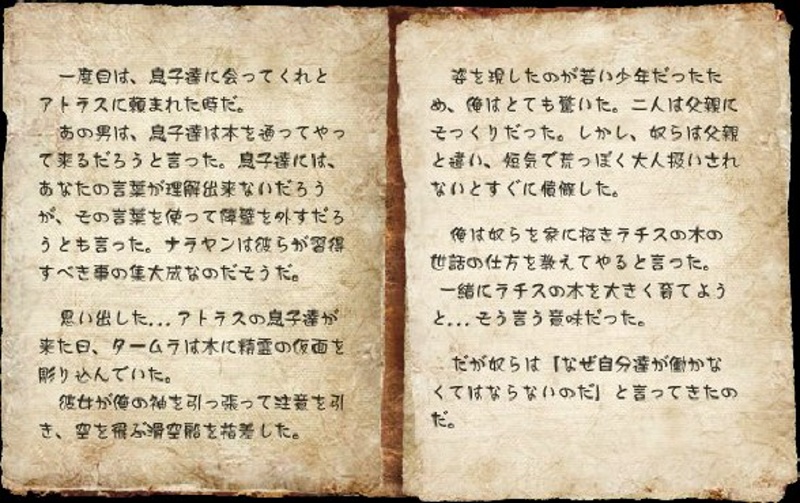 一度目は、息子達に会ってくれと
アトラスに頼まれた時だ。
あの男は、息子達は本を通ってやっ
て来るだろうと言った。息子達には、
あなたの言葉が理解出来ないだろう
が、その言葉を使って障壁を外すだろ
うとも言った。ナラヤンは彼らが習得
すべき事の集大成なのだそうだ。
思い出した...アトラスの息子達が
来た日、タームラは木に精霊の仮面を
彫り込んでいた。
彼女が俺の袖を引っ張って注意を引
き、空を飛ぶ滑空船を指差した。
姿を現したのが若い少年だったた
め、俺はとても驚いた。二人は父親に
そっくりだった。しかし、奴らは父親
と違い、短気で荒っぽく大人扱いされ
ないとすぐに憤慨した。
俺は奴らを家に招きラチスの木の
世話の仕方を教えてやると言った。
一緒にラチスの木を大きく育てよう
と...そう言う意味だった。
だが奴らは「なぜ自分達が働かな
くてはならないのだ」と言ってきたの
だ。